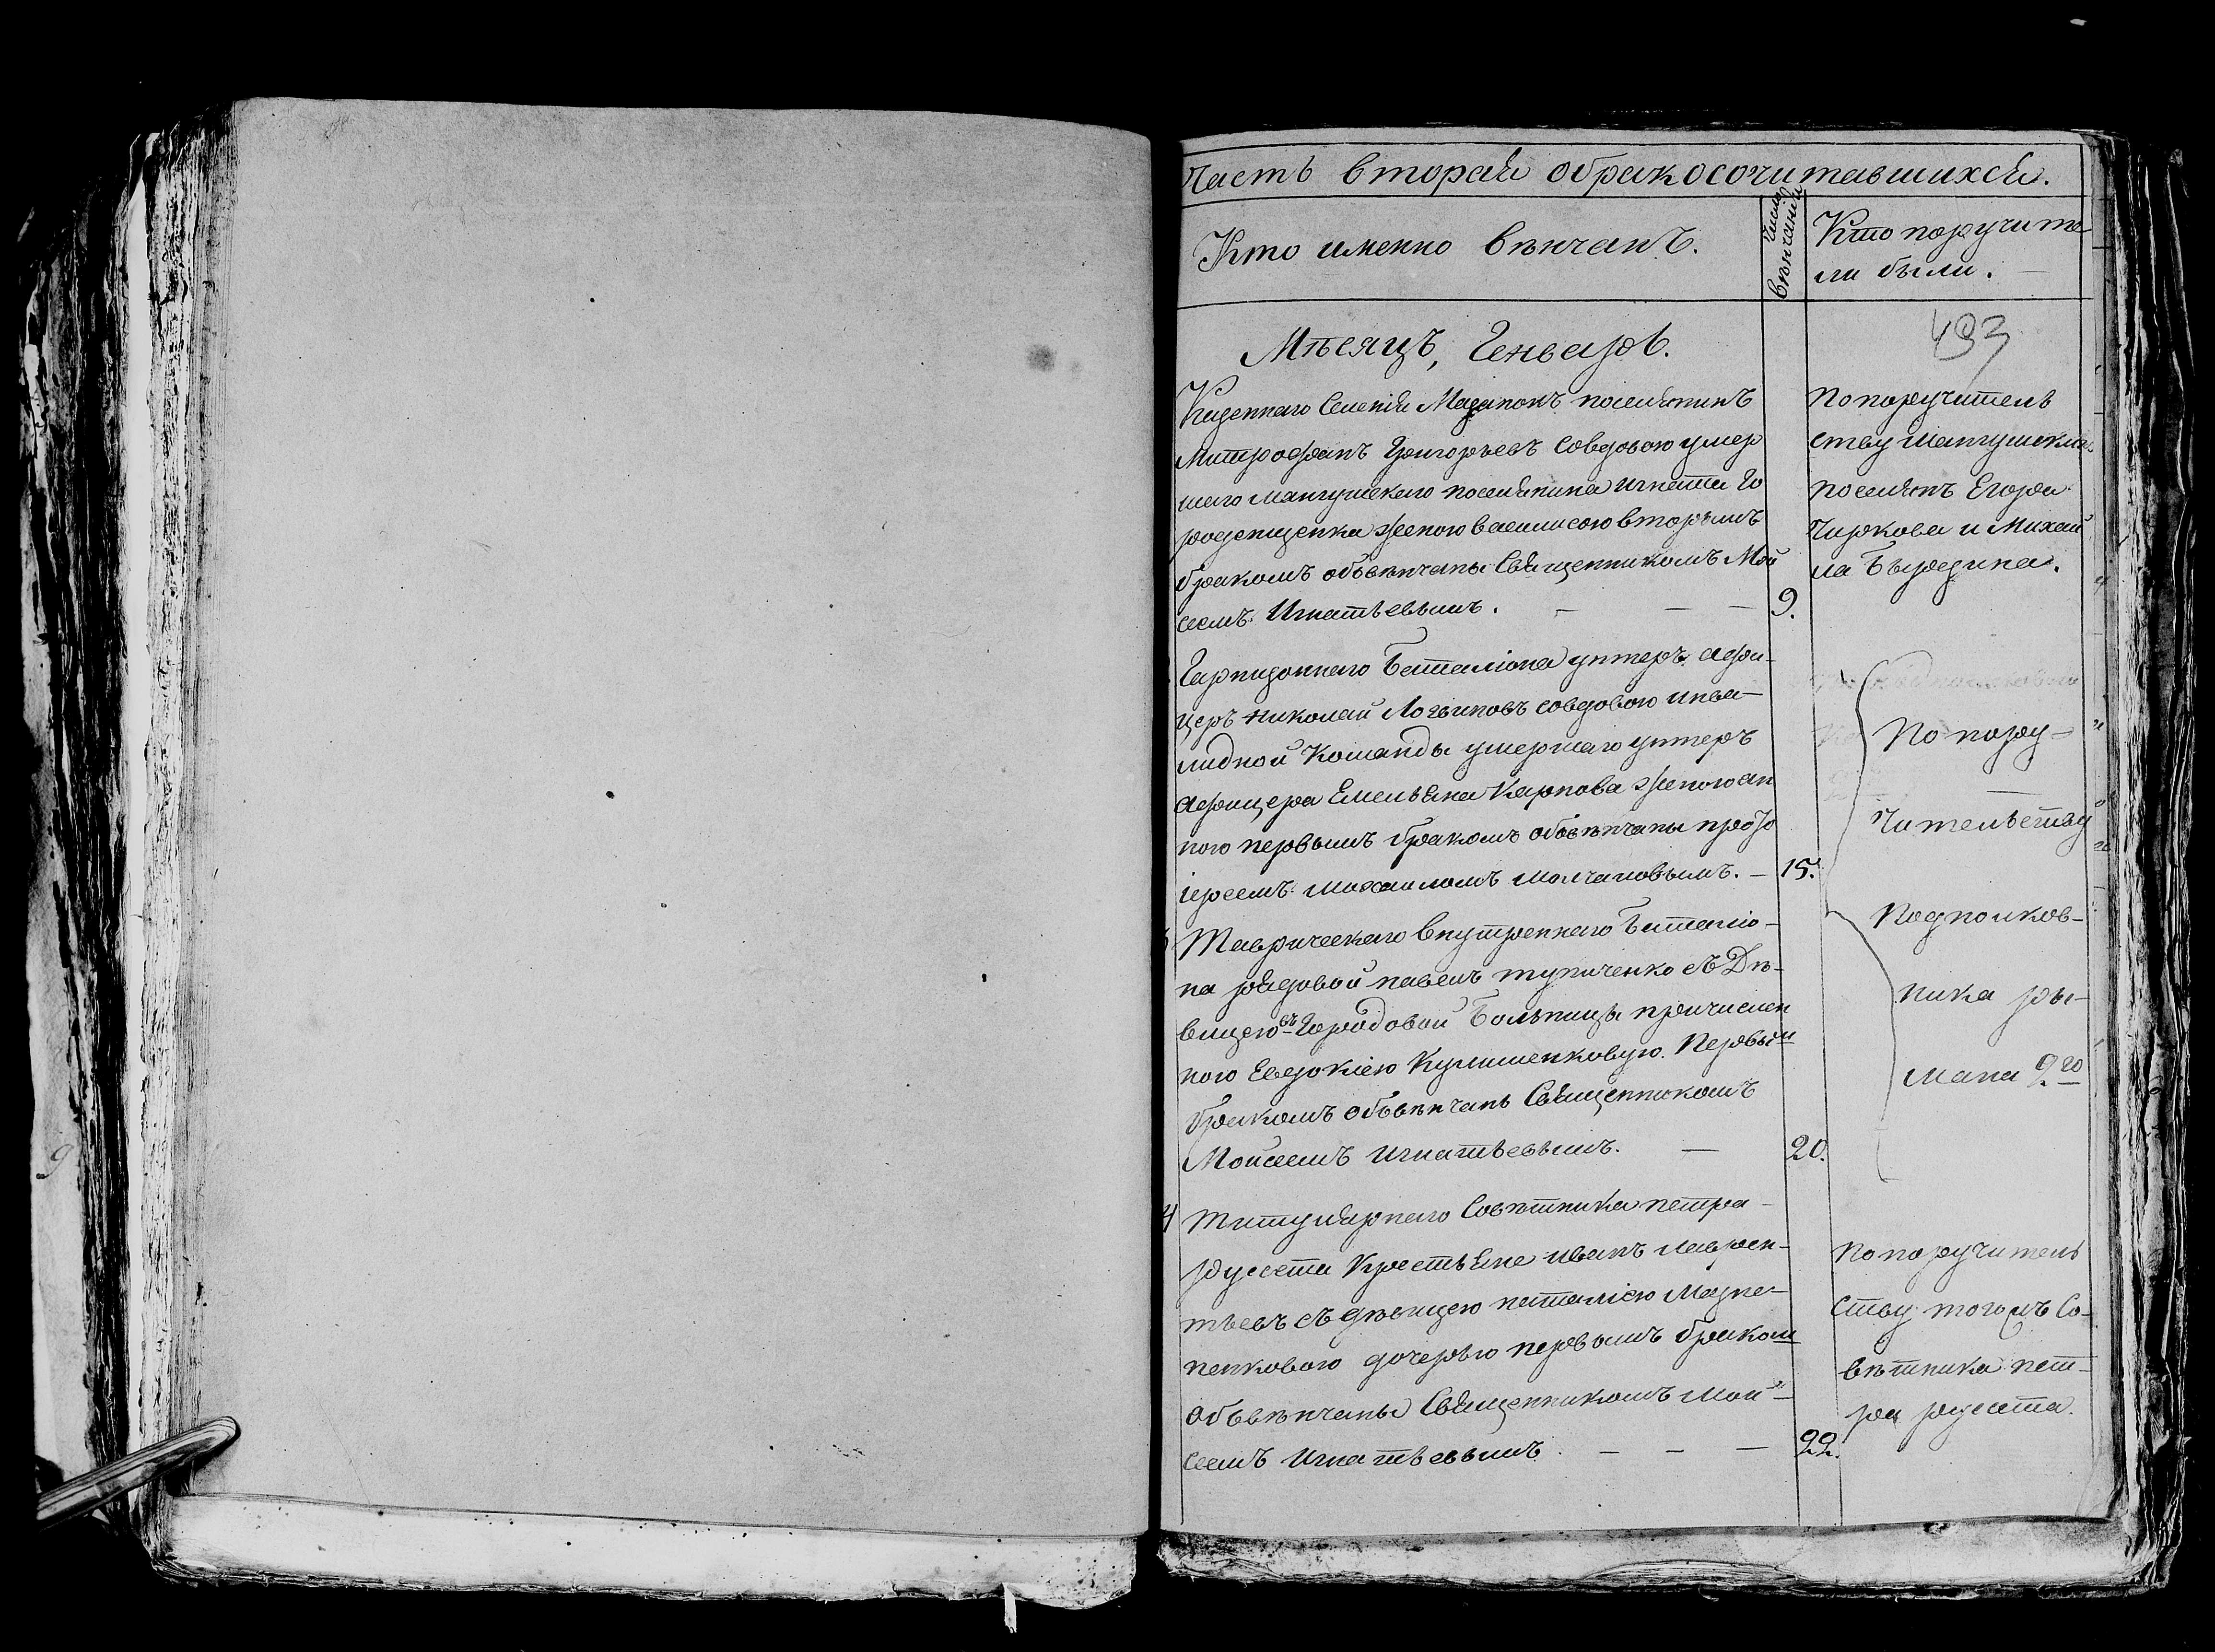 Часть вторая обракосочитавшихся.
Кто именно вѣнчанъ.
Число вѣнчанія
Кто поручите-
ли были. —
493
Мѣсяцъ, Генварь.
Казеннаго Селенія Мазанокъ поселянинъ
Митрофанъ Григорьевъ совдовою умер
шаго мангушскаго поселянина игната Го
роденщенка женою василисою вторымъ
бракомъ обвѣнчаны Священникомъ Мои
сеемъ Игнатьевымъ. — — — 9.
По поручитель
ству мангушских
поселянъ Егора
Чиркова и Михаи
ла Бырдина.
Гарнизоннаго Баталіона унтеръ афи-
церъ николай Логвиновъ совдовою инва-
лидной Команды умершаго унтеръ
афицера Емельяна Карпова женою ан
ною первымъ бракомъ обвѣнчаны прото
іереемъ михаиломъ молчановымъ. — 15.
По пору-
чительству
Подполков-
ника ры-
мана 9го
Таврическаго внутреннаго Баталіо-
на рядовой павелъ тупиченко съ Дѣ-
вицею въ Городовой Больницы причислен
ною Евдокіею Кулишенковую. Первым
бракомъ обвѣнчанъ Священникомъ
Моисеемъ игнатьевымъ. — 20.
4 Титулярнаго Совѣтника петра-
русета Крестьяне иванъ лаврен-
тьевъ съ дѣвицею наталіею Мазне-
пенковою дочерью первымъ браком
Обвѣнчаны Священникомъ мои-
сеемъ Игнатьевымъ. — — — 22.
по поручитель
ству тогожъ Со-
вѣтника пет-
ра русета.